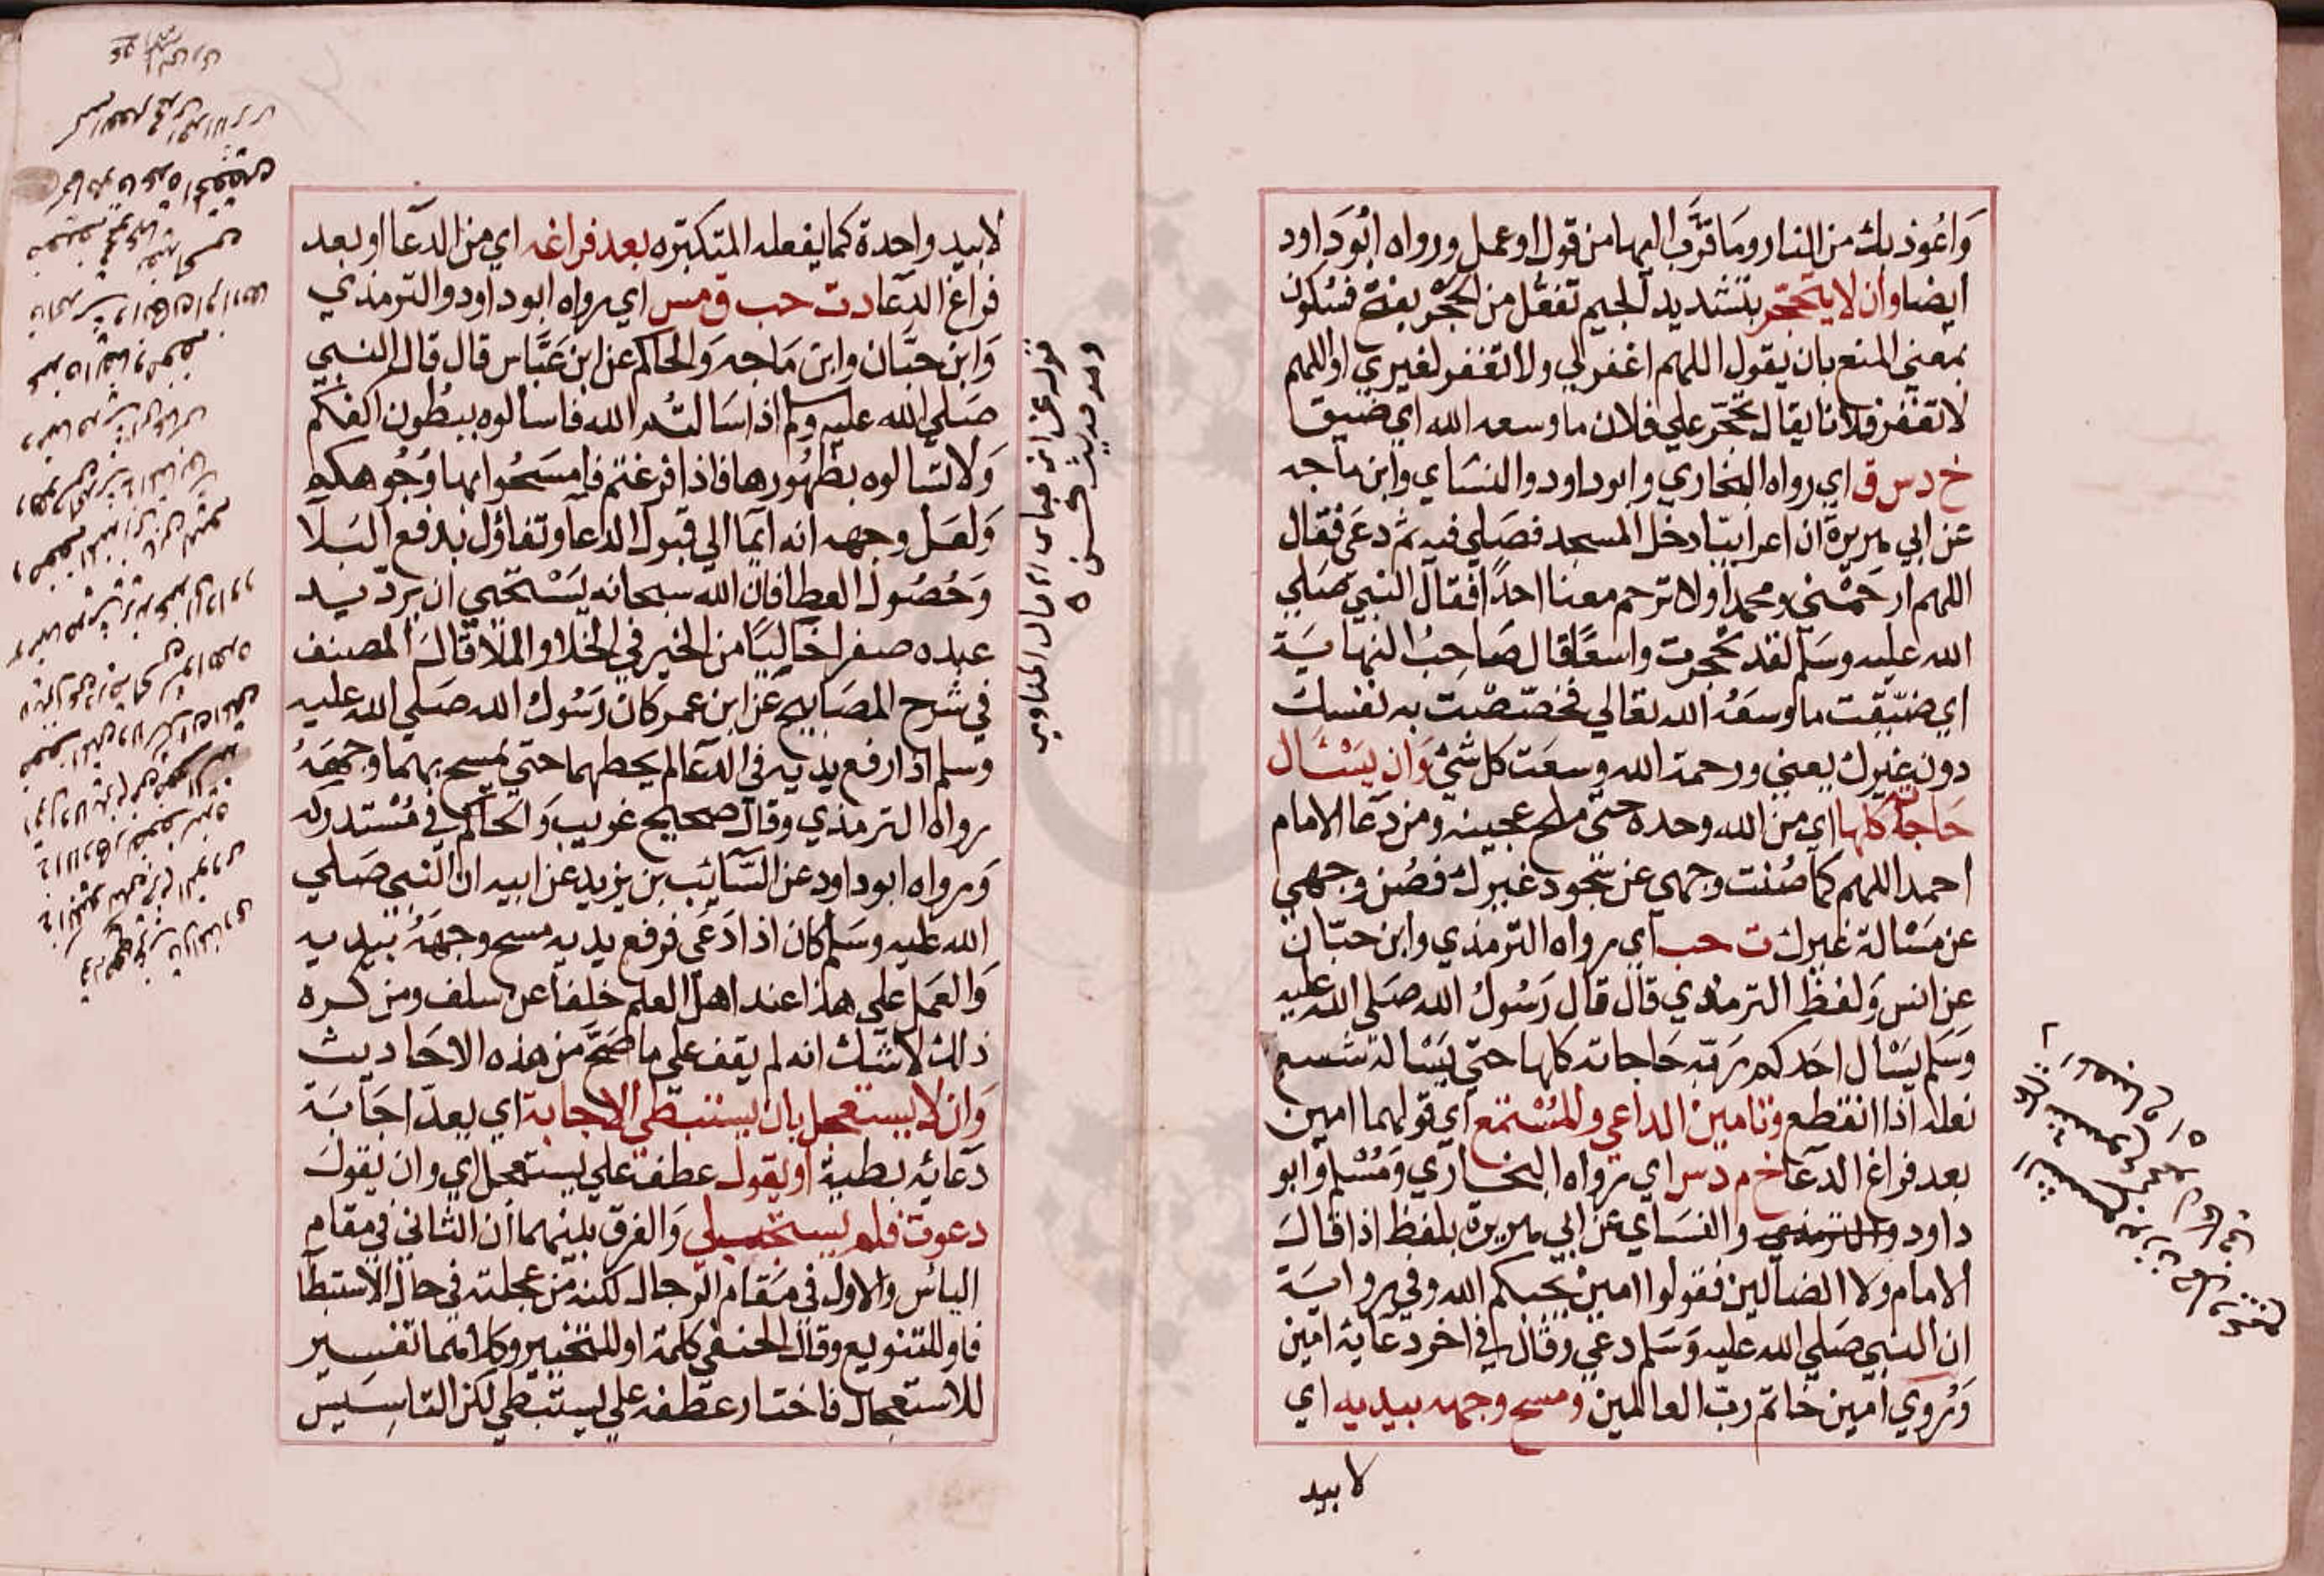 وَاعُوذ بك من النار وما قرَّب اليها من قول او عمل ورواه ابُو دَاود
ايضا وان لا يتحجّر بتشديد الجيم تفعُّل من الحجْر بفتح فسُكون
بمعني المنع بان يقول اللهم اغفر لي ولا تغفر لغيري او اللهم
لا تغفر فلانا يقال تحجّر علي فلان ما وسعه الله اي ضيق
خ د س ق اي رواه البخاري وابو داود والنسَاي وابن ماجه
عن ابي هريرة ان اعرابيّا دخل المسجد فصَلي فيه ثم دعَى فقال
اللهم ارحَمْني ومحمدا ولا ترحم معنا احدًا فقال النبي صَلي
الله عليه وسَلم لقد تحجرت واسعًا قال صَاحِبُ النهايَة
اي ضَيّقت ما وسعَهُ الله تعالي فخصّصْت به نفسك
دون غيرك يعني ورحمة الله وسعَت كل شَيْ وَان يَسْئَال
حَاجاته كلها اي من الله وحده حتى ملح عجينه ومن دعَا الامام
احمد اللهم كما صُنْت وجهي عن سجُود غيرك فصُن وجهي
عن مَسْالة غيرك ت حب اي رواه الترمذي وابن حبّان
عن انس وَلفظ الترمذي قال قال رَسُولُ الله صَلي الله عليه
وَسَلم ليَسْال احَدكم ربّه حَاجاته كلها حتي يَسْاله شسع
نعله اذا انقطع وتامين الداعي والمُسْتمع اي قولهما امين
بعد فراغ الدعا خ م د س اي رواه البخاري وَمُسْلم وابو
داود والترمذي والنسَاي عن ابي هريرة بلفظ اذا قالَ
الامام ولا الضالين فقولوا امين يجبكم الله وفي روايَة
ان النبي صَلي الله عليه وَسَلم دعى وقال في اخر دعايه امين
وَرُوي امين خاتم ربّ العالمين ومسح وجهه بيديه اي
لا بيد
لا بيد واحدة كما يفعله المتكبّره بعد فراغه اي من الدعا او بعد
فراغ الدعا د ت حب ق مس اي رواه ابو داود والترمذي
وَابن حبَّان وابن مَاجه وَالحاكم عن ابن عَبَّاس قال قال النبي
صَلي الله عليه وسلم اذا سَالتُم الله فاسالوه ببُطون اكفكم
وَلا تسَالوه بظهُورها فاذا فرغتم فامسَحُوا بها وُجُوهكم
وَلعَل وجهه انه ايمَا الي قبول الدعا وتفاؤل بدفع البَلا
وَحُصُول العطا فان الله سبحانه يَسْتحيي ان يردّ يد
عبده صفرا خاليًا من الخير في الخلا والملا قالَ المصنف
في شرح المصَابيح عن ابن عمر كان رَسُولُ الله صَلي الله عليه
وسلم اذا رفع يديه في الدعا لم يحطهما حتي يمسح بهما وجهَهُ
رواه الترمذي وقال صحيح غريب وَالحاكم في مُسْتدركه
وَرواه ابو داود عن السَّائب بن يزيد عن ابيه ان النبي صَلي
الله عليه وسَلم كان اذا دَعَى فرفع يديه مسح وجهَهُ بيديه
وَالعَمل علي هذا عند اهل العلم خلفًا عن سلف ومن كره
ذلك لا شك انه لم يقف علي ما صَحَّ من هذه الاحَاديث
وَان لا يستعجل بان يستبطي الاجابة اي يعدّ اجَابَة
دَعائه بطية او يقول عطف علي يستعجل اي وان يقولَ
دعوت فلم يستجب لي وَالفرق بينهما ان الثاني في مقام
الياس والاول في مَقام الرجا لكنه من عجلته في حال الاستبطا
فاو للتنويع وقال الحنفي كلمة او للتخيير وكلاهما تفسير
للاستعجال فاختار عطفه علي يستبطي لكن التاسِيس
قوله عن ابن عباس الخ قال المناوي
وهو حديث حسن ه